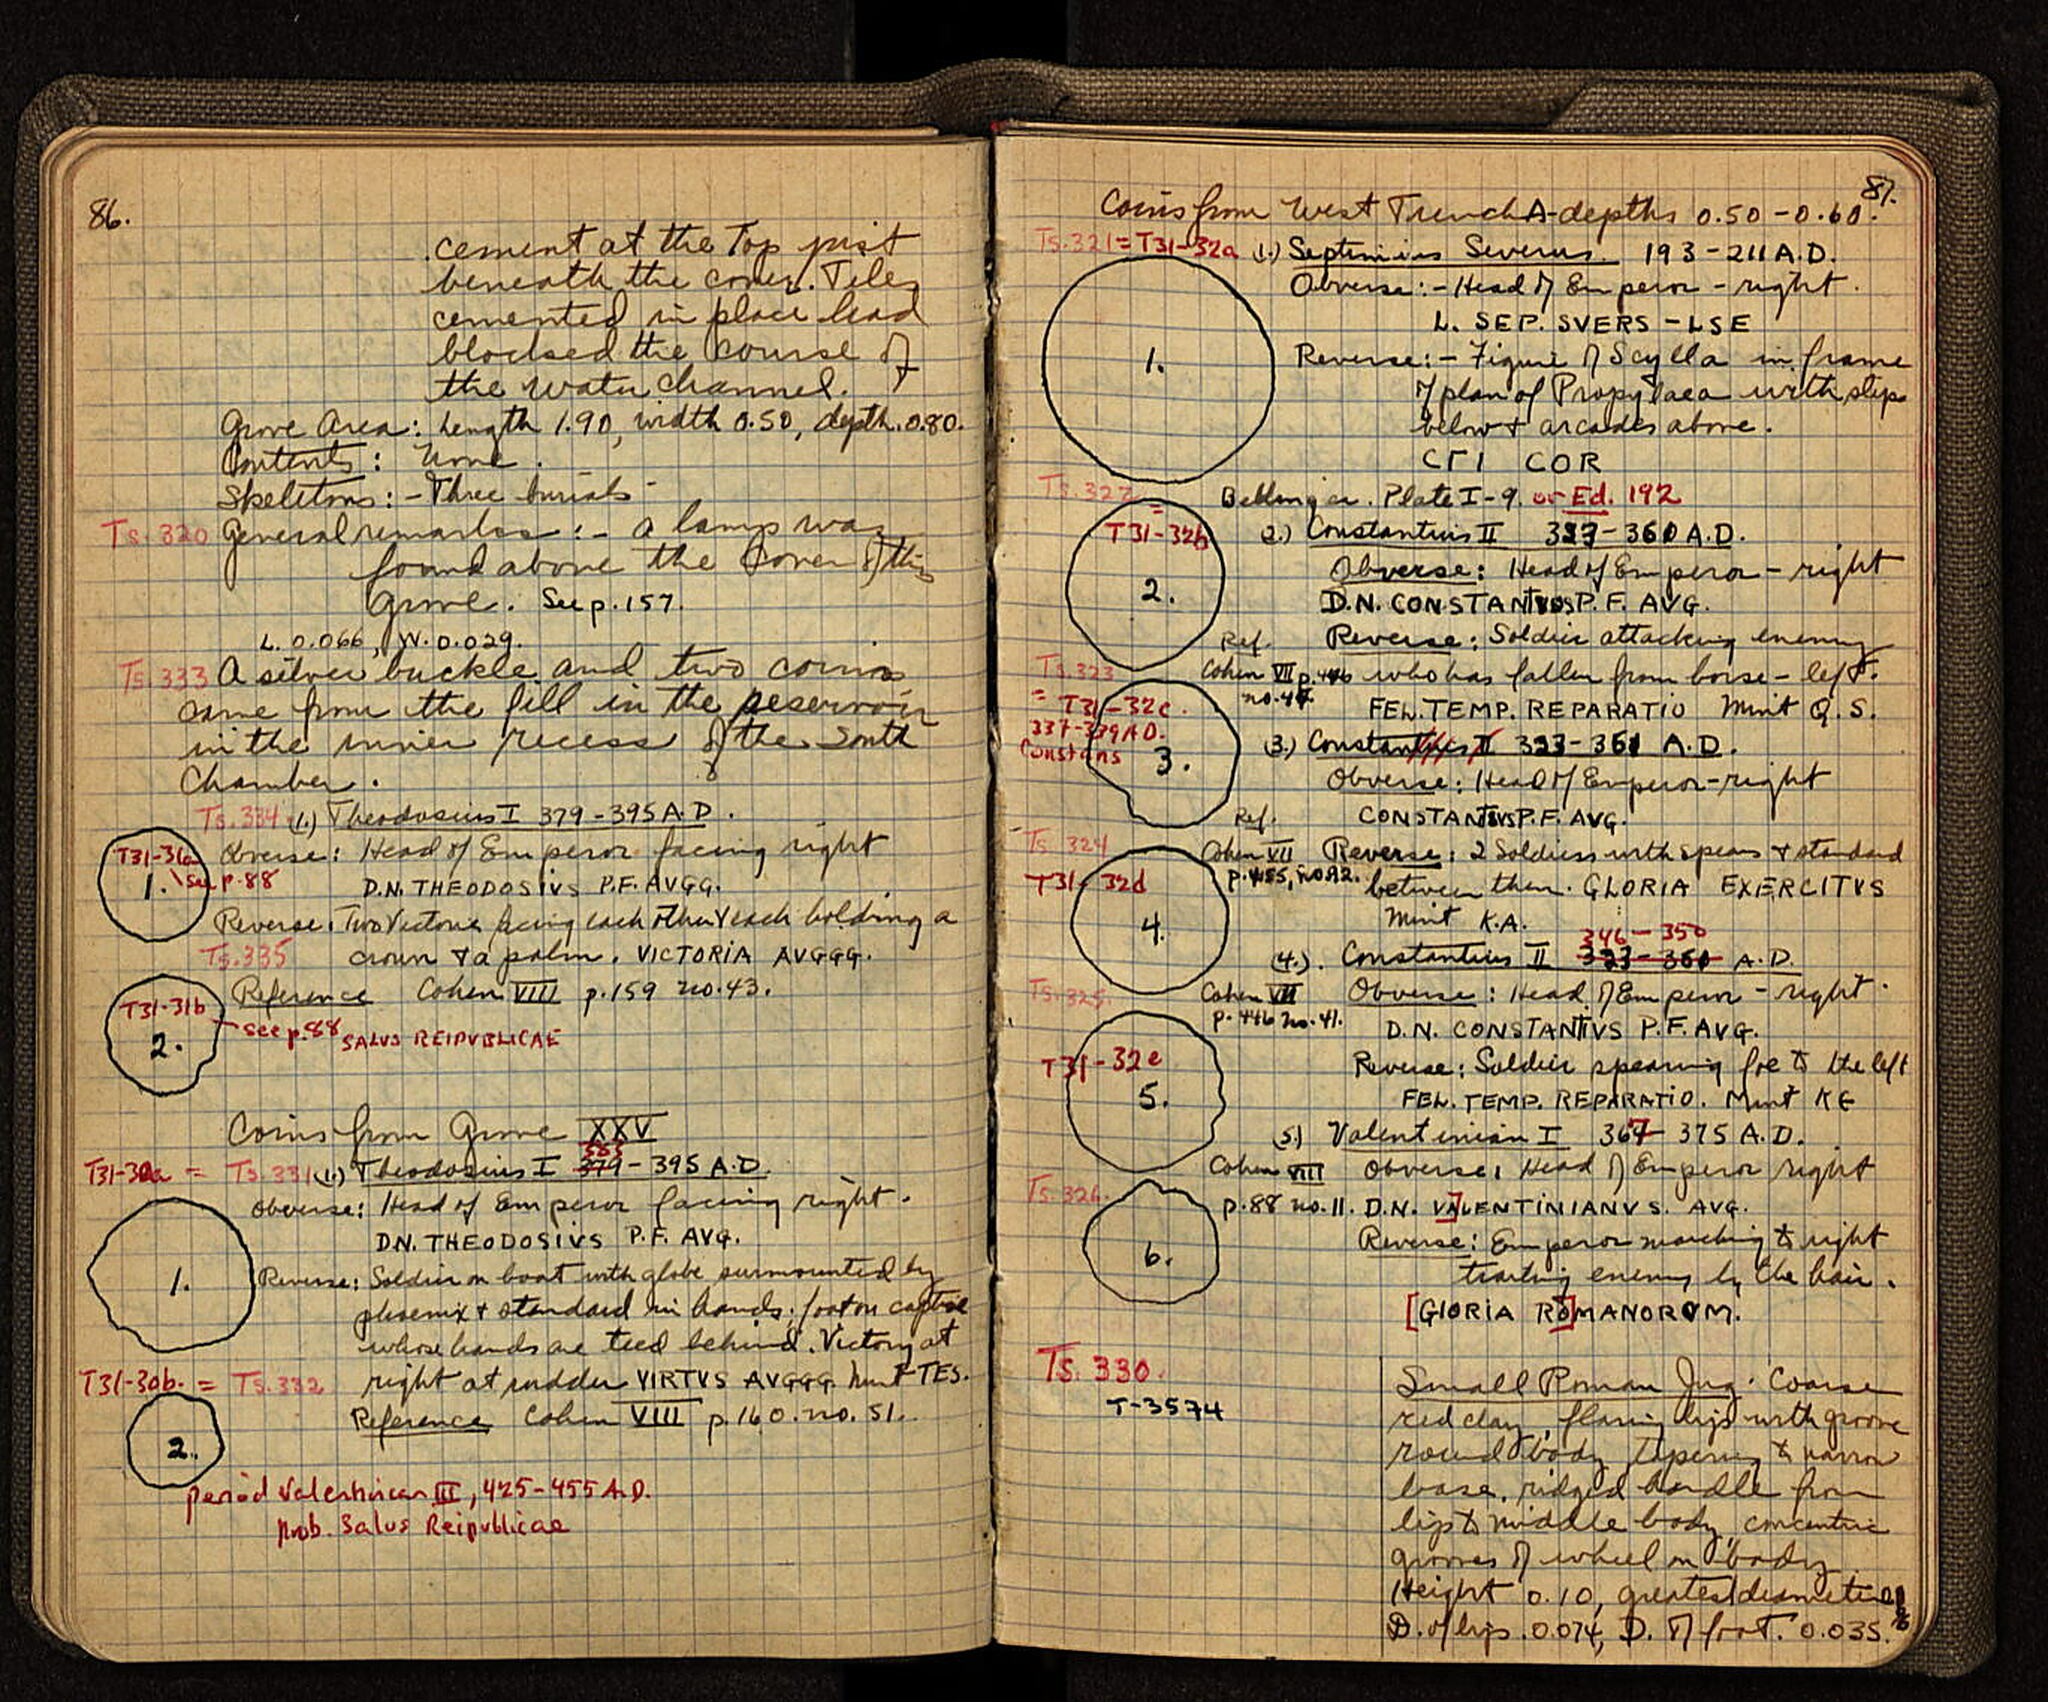 86.
cement at the Top just
beneath the cover. Tiles
cemented in place had
blocked the course of
the water channel.
Grave Area: Length 1.90, width 0.50, depth. 0.80.
Contents: None.
Skeletons:- Three burials
Ts. 320 General remarks:- a lamp was
found above the cover of this
grave. See p. 157.
L. 0.066, W. 0.029.
Ts. 333 A silver buckle and two coins
came from the fill in the reservoir
in the inner recess of the South
Chamber.
Ts. 334 (1.) Theodosius I 379-395 A.D.
T31-31a
1. see p. 88
Obverse: Head of Emperor facing right
D.N. THEODOSIVS P.F. AVGG.
Reverse: Two Victories facing each other & each holding a
Ts. 335 crown & a palm. VICTORIA AVGGG.
Reference Cohen VIII p. 159 no. 43.
T31-31b
2.
see p. 88 SALUS REIPVBLICAE
Coins from Grave XXV
383
T31-30a = Ts. 331 (1.) Theodosius I 379-395 A.D.
Obverse: Head of Emperor facing right.
D.N. THEODOSIVS P.F. AVG.
1.
Reverse: Soldier on boat with globe surmounted by
phoenix & standard in hands; foot on captive
whose hands are tied behind. Victory at
T31-30b. = Ts. 332 right at rudder VIRTVS AVGGG. Mint TES.
Reference Cohen VIII p. 160. no. 51.
2.
period Valentinian III, 425-455 A.D.
prob. Salus Reipublicae
87.
Coins from West Trench A-depths 0.50-0.60.
Ts. 321 = T31-32a (1.) Septimius Severus. 193-211 A.D.
Obverse:- Head of Emperor - right.
L. SEP. SVERS - LSE
1.
Reverse:- Figure of Scylla in frame
of plan of Propylaea with steps
below & arcades above.
CLI COR
Ts. 322 Bellinger. Plate I-9. or Ed. 192
= T31-32b
2.
(2.) Constantius II 323-361 A.D.
Obverse: Head of Emperor - right
D.N. CONSTANTIVS P.F. AVG.
Ref. Reverse: Soldier attacking enemy
Ts. 323 Cohen VII p. 446 who has fallen from horse - left.
no. 47. FEL. TEMP. REPARATIO Mint Q.S.
= T31-32c.
337-339 A.D.
Constans
3.
(3.) Constantius II 323-361 A.D.
Obverse: Head of Emperor-right
Ref. CONSTANTIVS P.F. AVG.
Ts. 324 Cohen VII Reverse: 2 Soldiers with spears & standard
T31-32d p. 455, no. 92. between them. GLORIA EXERCITVS
Mint K.A.
4.
346-350
(4.) Constantius II 323-361 A.D.
Ts. 325. Cohen VII Obverse: Head of Emperor - right.
p. 446 no. 41. D.N. CONSTANTIVS P.F. AVG.
T31-32e
5.
Reverse: Soldier spearing foe to the left
FEL. TEMP. REPARATIO. Mint KE
(5.) Valentinian I 367-375 A.D.
Cohen VIII Obverse: Head of Emperor right
Ts. 326. p. 88 no. 11. D.N. VALENTINIANVS. AVG.
6.
Reverse: Emperor marching to right
trailing enemy by the hair.
[GlORIA RO]MANORVM.
Ts. 330.
T-3574
Small Roman Jug. Coarse
red clay, flaring lips with groove
round body tapering to narrow
base, ridged handle from
lip to middle body, concentric
grooves of wheel on body
Height 0.10, greatest diameter
D. of lips. 0.074, D. of foot. 0.035.